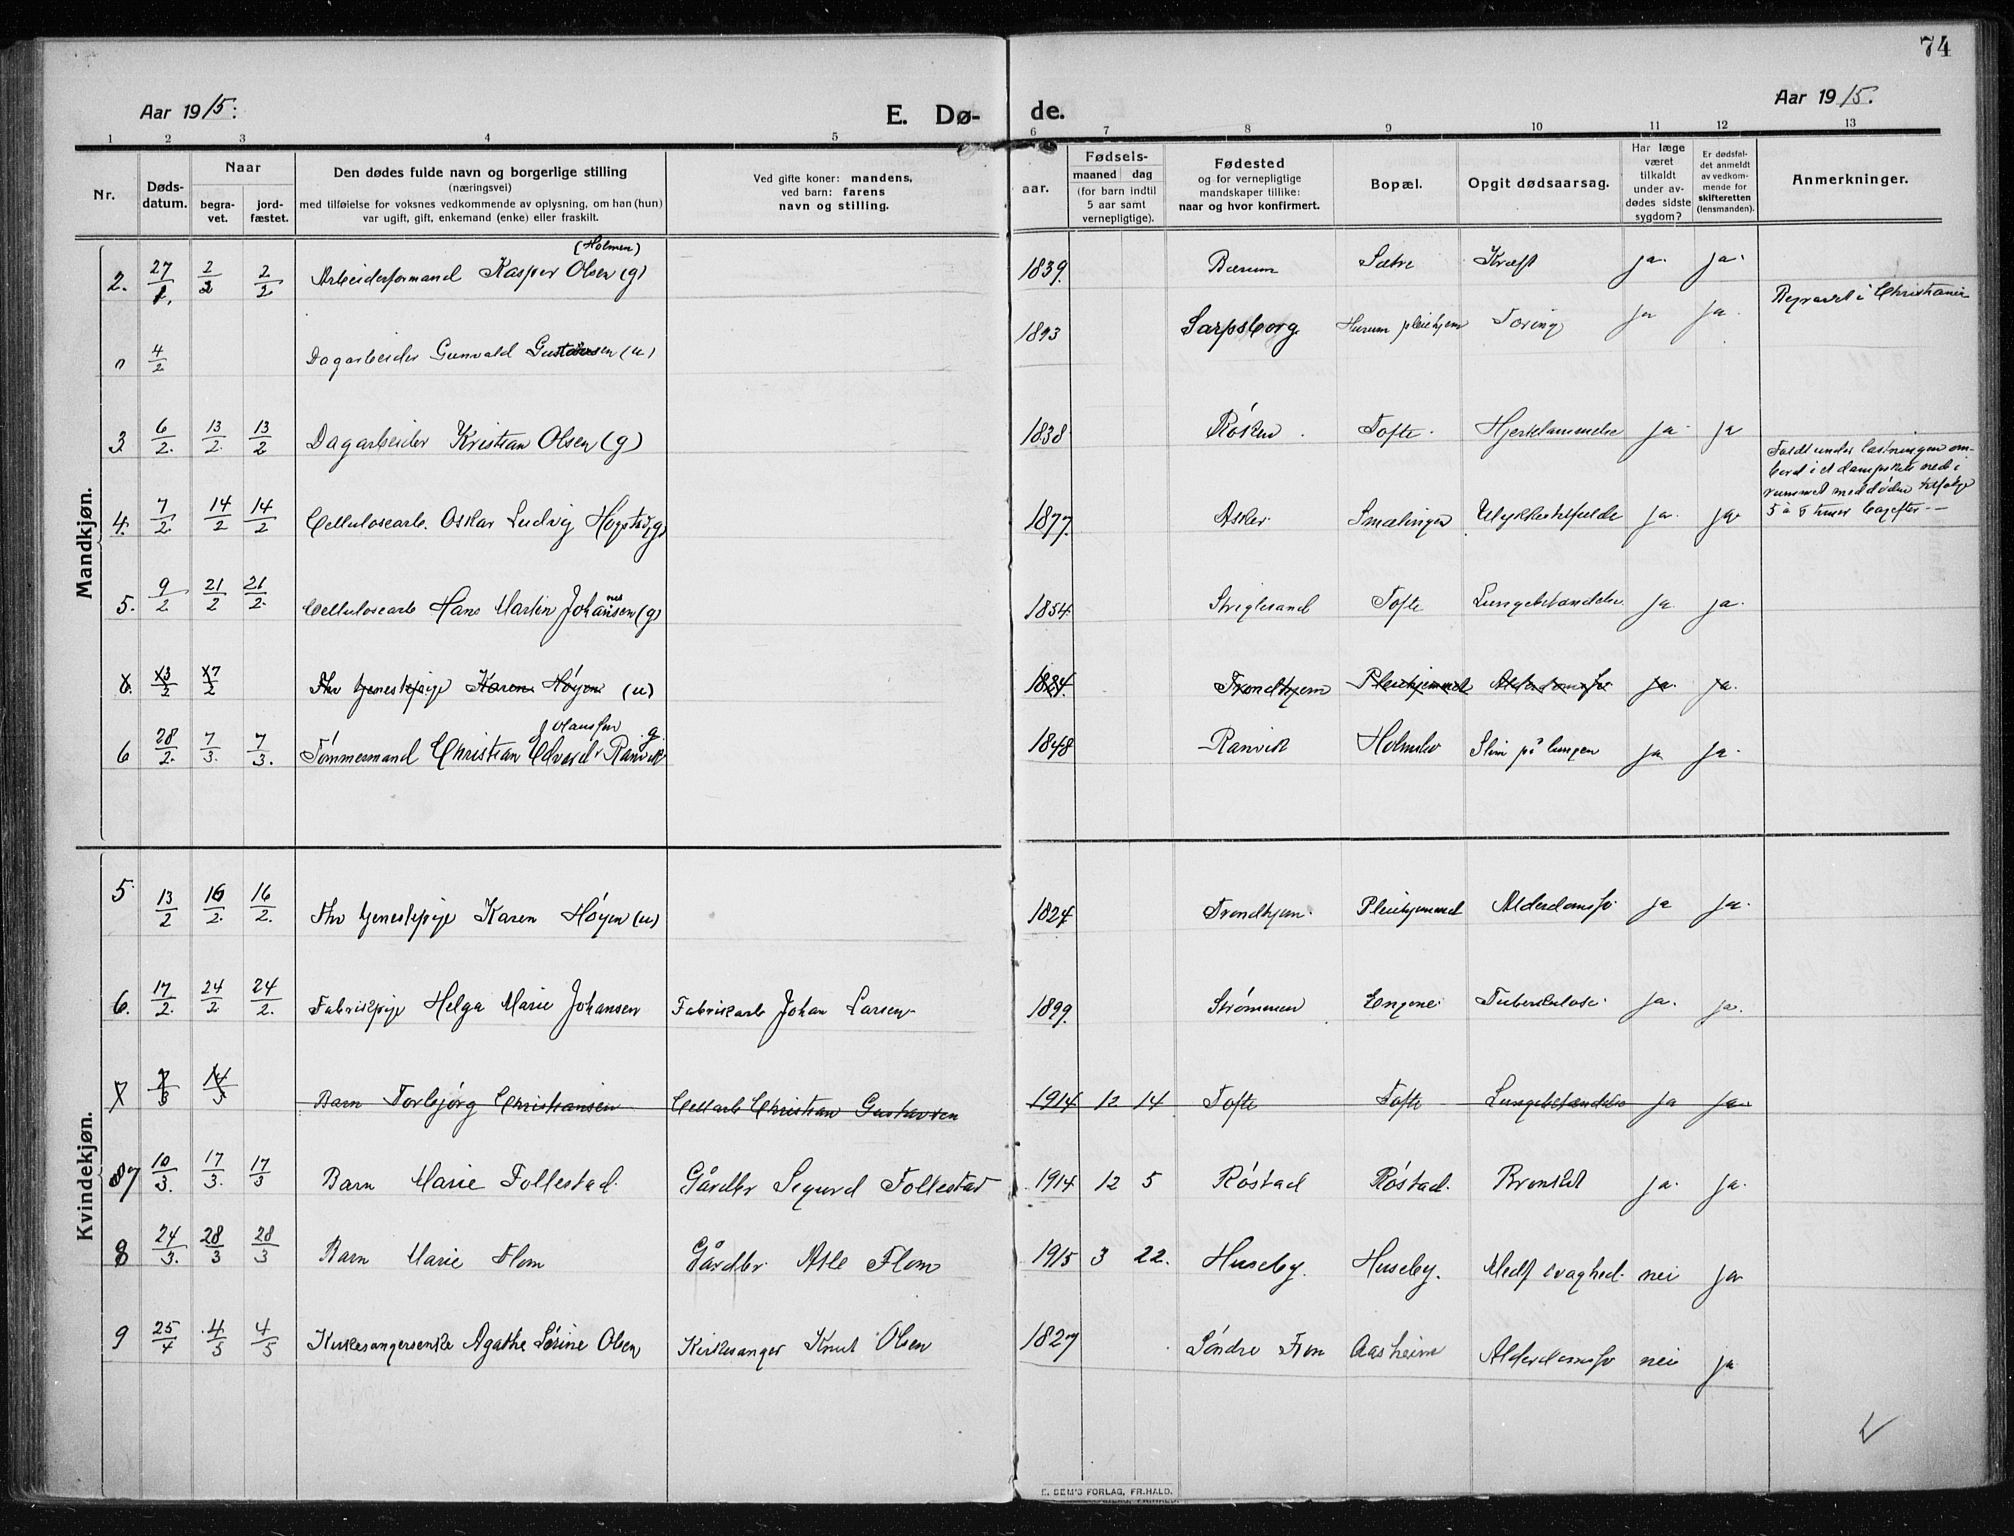 74
Aar 1915:
E. Dø-
de.
Aar 1915.
1 2 3 4 5 6 7 8 9 10 11 12 13
Nr.
Døds-
datum.
Naar
begra-
vet.
jord-
fæstet.
Den dødes fulde navn og borgerlige stilling
(næringsvei)
med tilføielse for voksnes vedkommende av oplysning, om han (hun)
var ugift, gift, enkemand (enke) eller fraskilt.
Ved gifte koner: mandens,
ved barn: farens
navn og stilling.
aar.
Fødsels-
maaned dag
(for barn indtil
5 aar samt
vernepligtige).
Fødested
og for vernepligtige
mandskaper tillike:
naar og hvor konfirmert.
Bopæl.
Opgit dødsaarsag.
Har læge
været
tilkaldt
under av-
dødes sidste
sygdom?
Er dødsfal-
det anmeldt
av vedkom-
mende for
skifteretten
(lensmanden).
Anmerkninger.
Mandkjøn.
(Holmen)
2. 27/1. 2/2 2/2 Arbeiderformand Kasper Olsen (g) 1839. Bærum Sætre Kræft ja. ja.
Begravet i Christiania
" 4/2 Dagarbeider Gunvald Gustavsen (u) 1893 Sarpsborg Hurum pleiehjem Tæring ja ja.
3. 6/2. 13/2. 13/2 Dagarbeider Kristian Olsen (g) 1838. Røken. Tofte. Hjerklammelse ja. ja
Faldt under lastningen om-
bord i et dampskib ned i
rummet med døden tilfølge
5 à 6 timer bagefter.
4. 7/2. 14/2 14/2 Cellulosearb. Oskar Ludvig Hogstad (g) 1877. Asker. Smælingen Ulykkestilfælde ja. ja.
5. 9/2 21/2 21/2. Cellulosearb Hans Martin Johansen (g) 1854. Tofte Lungebetændelse ja. ja.
nes
6. 13/2 17/2 Fhv tjenestepige Karen Høyen (u) 1824. Trondhjem Pleiehjemmet Alderdomssv ja. ja.
6 28/2. 7/3. 7/3. Tømmermand Christian Edvard Ranvik 1848. Ranvik Holmsbo Slim på lungen ja ja.
Olaussen g.
Kvindekjøn.
5. 13/2 16/2. 16/2. Fhv tjenestepige Karen Høyen (u) 1824 Trondhjem. Pleiehjemmet Alderdomssv. ja ja.
6. 17/2. 24/2 24/2. Fabrikpige Helga Marie Johansen Fabrikarb Johan Larsen 1899. Strømmen Engene. Tuberkulose. ja. ja.
7 7/3 14/3 Barn Torbjørg Christiansen Cellarb Christian Gustavsen 1914 12 14 Tofte Tofte Lungebetændelse ja ja
87 10/3. 17/3. 17/3 Barn Marie Follestad. Gårdbr Sigurd Follestad 1914 12 5 Røstad Røstad. Bronkit ja. ja.
8 24/3. 28/3 28/3 Barn Marie Flom Gårdbr. Asle Flom 1915 3 22. Huseby. Huseby. Medf svaghed. nei ja
9 25/4 4/5 4/5 Kirkesangerenke Agathe Sørine Olsen Kirkesanger Knut Olsen 1827 Søndre Fron Aasheim Alderdomssv nei ja
E. SEM'S FORLAG, FR.HALD.